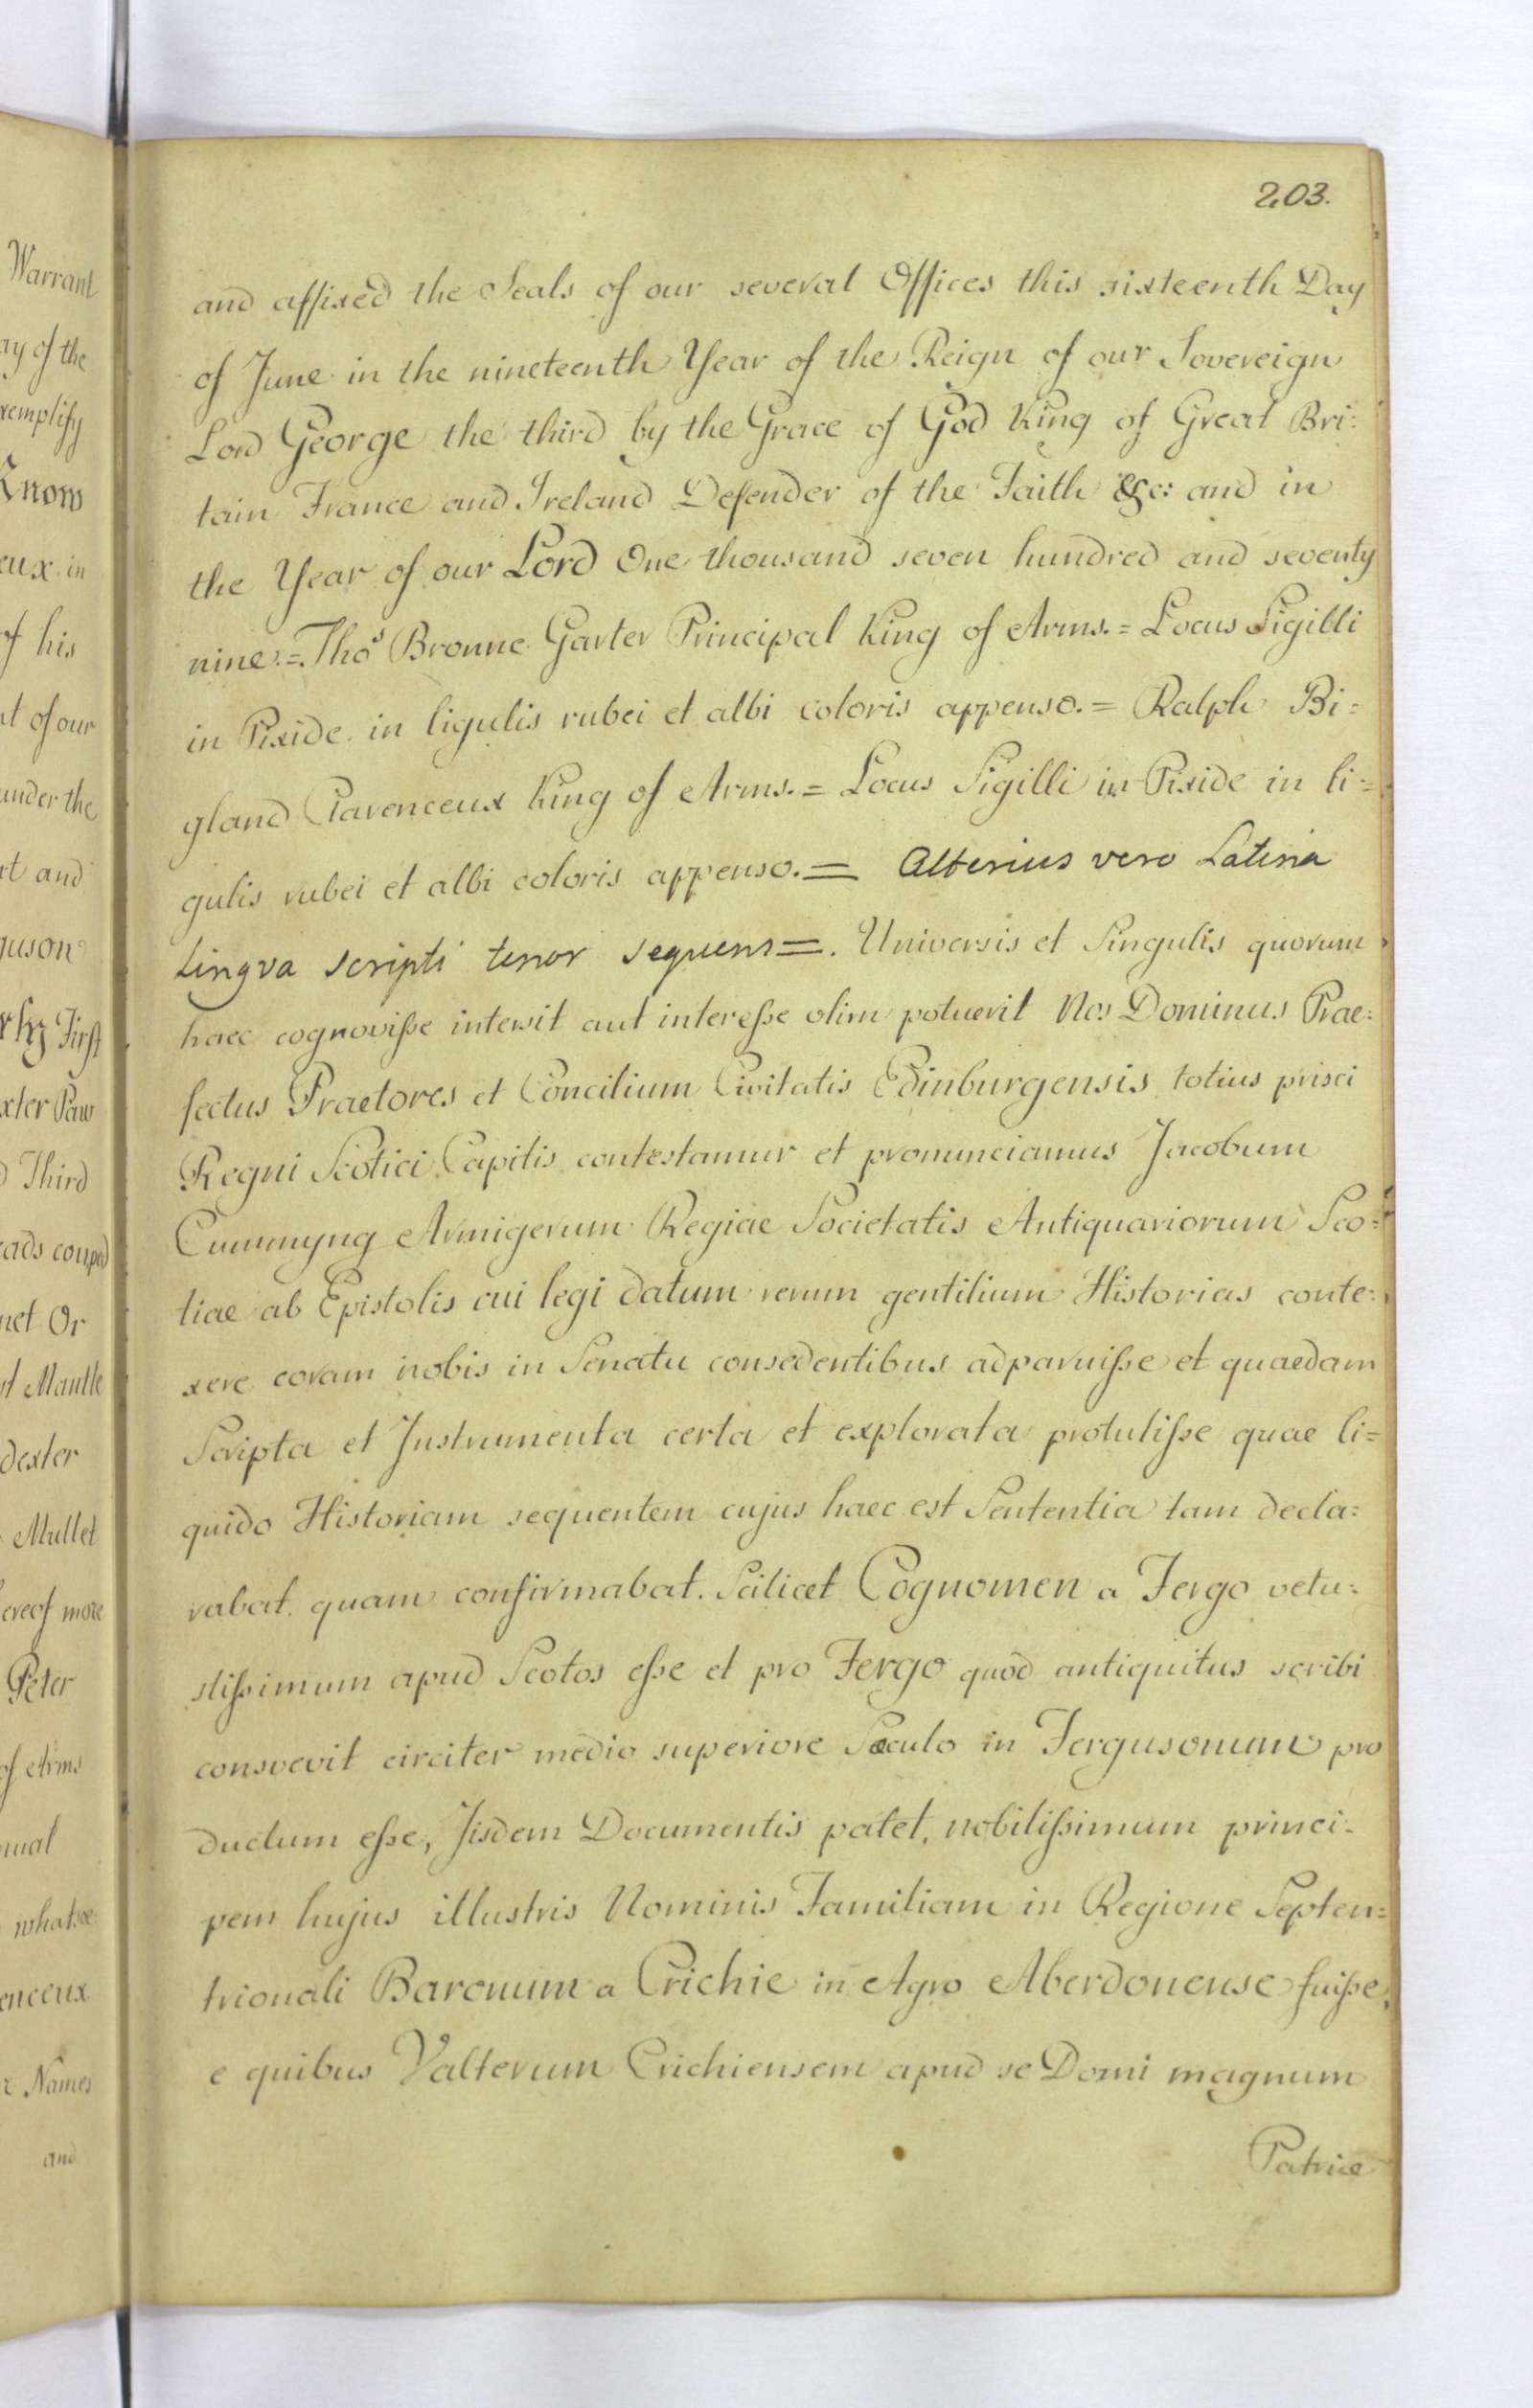 203.
and affixed the Seals of our several Offices this sixteenth Day
of June in the nineteenth Year of the Reign of our Sovereign
Lord George the third by the Grace of God King of Great Bri:
tain France and Ireland Defender of the Faith &c: and in
the Year of our Lord One thousand seven hundred and seventy
nine.=Thos Bronne Garter Principal King of Arms.= Locus Sigilli
in Pixide in ligulis rubei et albi coloris appenso.= Ralph Bi=
gland Clarenceux King of Arms.= Locus Sigilli in Pixide in li=
gulis rubei et albi coloris appenso.= Alterius vero Latina
Lingva scripti tenor sequens=. Universis et Singulis quorum
haec cognovisse intersit aut interesse olim potuerit Nos Dominus Prae:
fectus Praetores et Concilium Civitatis Edinburgensis totius prisci
Regni Scotici Capitis contestamur et pronunciamus Jacobum
Cummyng Armigerum Regiae Societatis Antiquariorum Sco=
tiae ab Epistolis cui legi datum rerum gentilium Historias conte:
xere coram nobis in Senatu consedentibus adparuisse et quaedam
Scripta et Instrumenta certa et explorata protulisse quae li=
quido Historiam sequentem cujus haec est Sententia tam decla:
rabat quam confirmabat. Scilicet Cognomen a Fergo vetu:
stissimum apud Scotos esse et pro Fergo quod antiquitus scribi
consvevit circiter medio superiore Sæculo in Fergusonum pro
ductum esse, Iisdem Documentis patet, nobilissimum princi-
pem hujus illustris Nominis Familiam in Regione Septen=
trionali Baronum a Crichie in Agro Aberdonense fuisse,
e quibus Valterum Crichiensem apud se Domi magnum
Patriæ
Warrant
ay of the
xemplify
Know
eux in
of his
nt of our
under the
rt and
guson
rly First
xter Paw
d Third
eads couped
net Or
nt Mantle
dexter
Mullet
ereof more
Peter
of Arms
nual
whatsoe
enceux
r Names
and